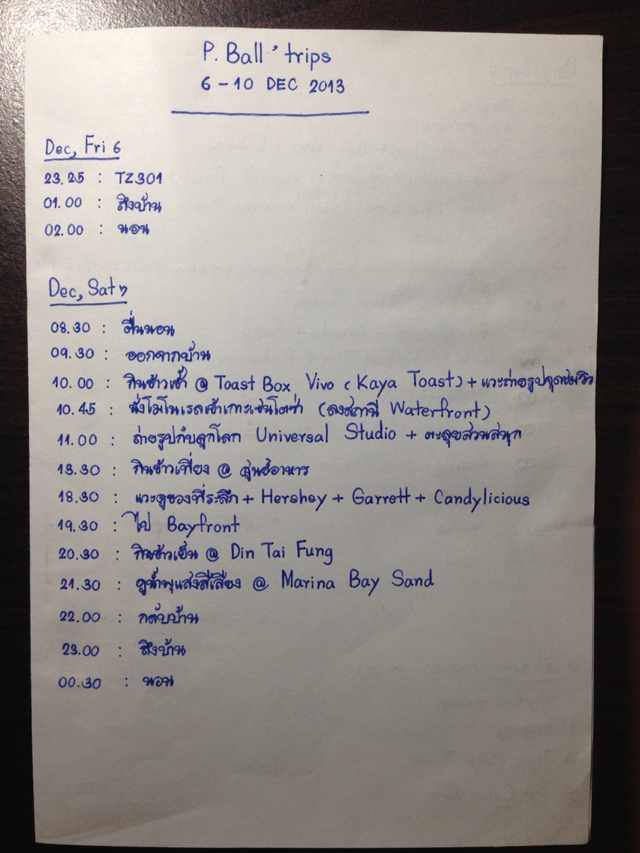 P. Ball' trips
6 - 10 DEC 2013
Dec, Fri 6
23.25 : TZ301
01.00 : ถึงบ้าน
02.00 : นอน
Dec, Sat 7
08.30 : ตื่นนอน
09.30 : ออกจากบ้าน
10.00 : กินข้าวเช้า @ Toast Box Vivo (Kaya Toast) + แวะถ่ายรูปจุดชมวิว
10.45 : นั่งโมโนเรลเข้าเกาะเซ็นโตซ่า (ลงสถานี Waterfront)
11.00 : ถ่ายรูปกับลูกโลก Universal Studio + ตะลุยสวนสนุก
13.30 : กินข้าวเที่ยง @ ศูนย์อาหาร
18.30 : แวะดูของที่ระลึก + Hershey + Garrett + Candylicious
19.30 : ไป Bayfront
20.30 : กินข้าวเย็น @ Din Tai Fung
21.30 : ดูน้ำพุแสงสีเสียง @ Marina Bay Sand
22.00 : กลับบ้าน
23.00 : ถึงบ้าน
00.30 : นอน